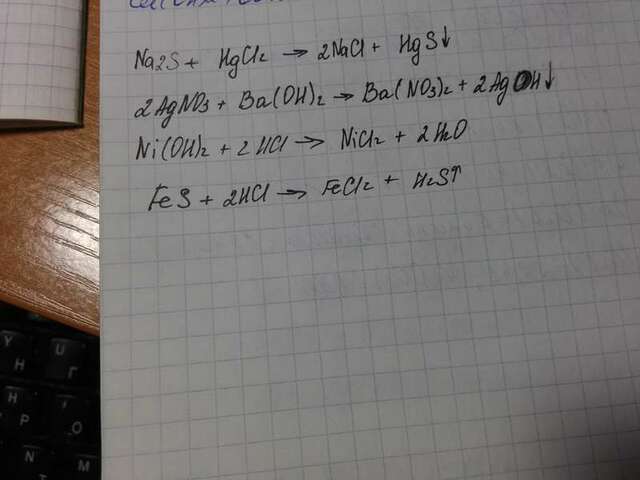 Na2S + HgCl2 → 2NaCl + HgS↓
2AgNO3 + Ba(OH)2 → Ba(NO3)2 + 2AgOH↓
Ni(OH)2 + 2HCl → NiCl2 + 2H2O
FeS + 2HCl → FeCl2 + H2S↑
Y
Н
U
Г
Н
Р
J
О
N
Т
M